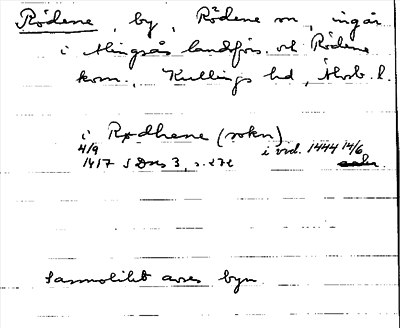 Rödene, by, Rödene sn, ingår
i Alingsås landförs. och Rödene
kom., Kullings hd, Älvsb. l.
i Rødhene (sokn)
4/9 i vid. 1444 14/6
1417 SDns 3, s. 272
Sannolikt avses byn